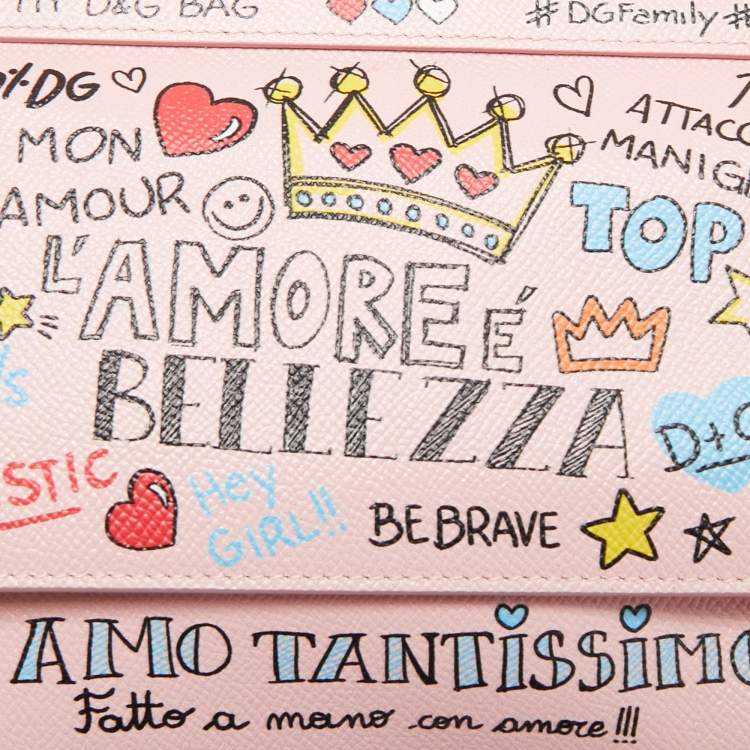 MY D&G BAG
#DGFamily #
%DG
MON
AMOUR
ATTACC
MANIGL
TOP
L'AMORE É
BELLEZZA
D+G
STIC
Hey
GIRL!!
BE BRAVE
AMO TANTISSIMO
Fatto a mano con amore!!!